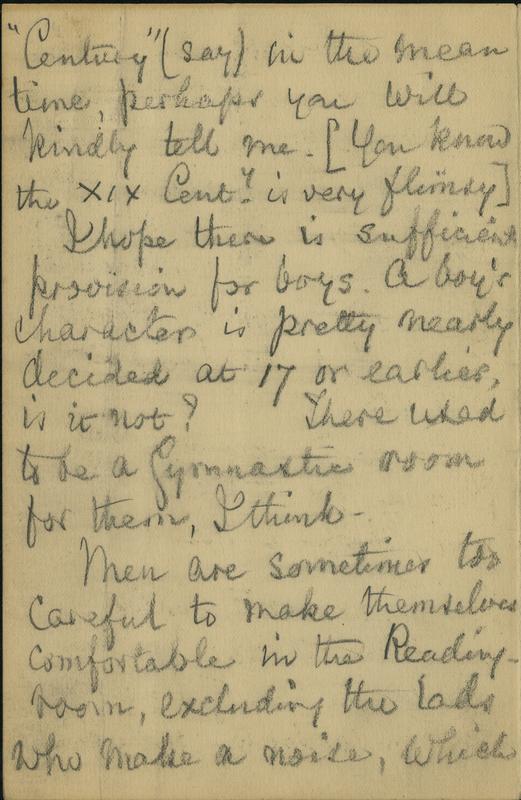 "Century" (say) in the mean
time, perhaps you will
kindly tell me. [You know
the XIX Cent.y is very flimsy]
I hope there is sufficient
provision for boys. A boy's
character is pretty nearly
decided at 17 or earlier,
is it not? There used
to be a Gymnastic room
for them, I think -
Men are sometimes too
careful to make themselves
comfortable in the Reading-
room, excluding the lads
who make a noise, which